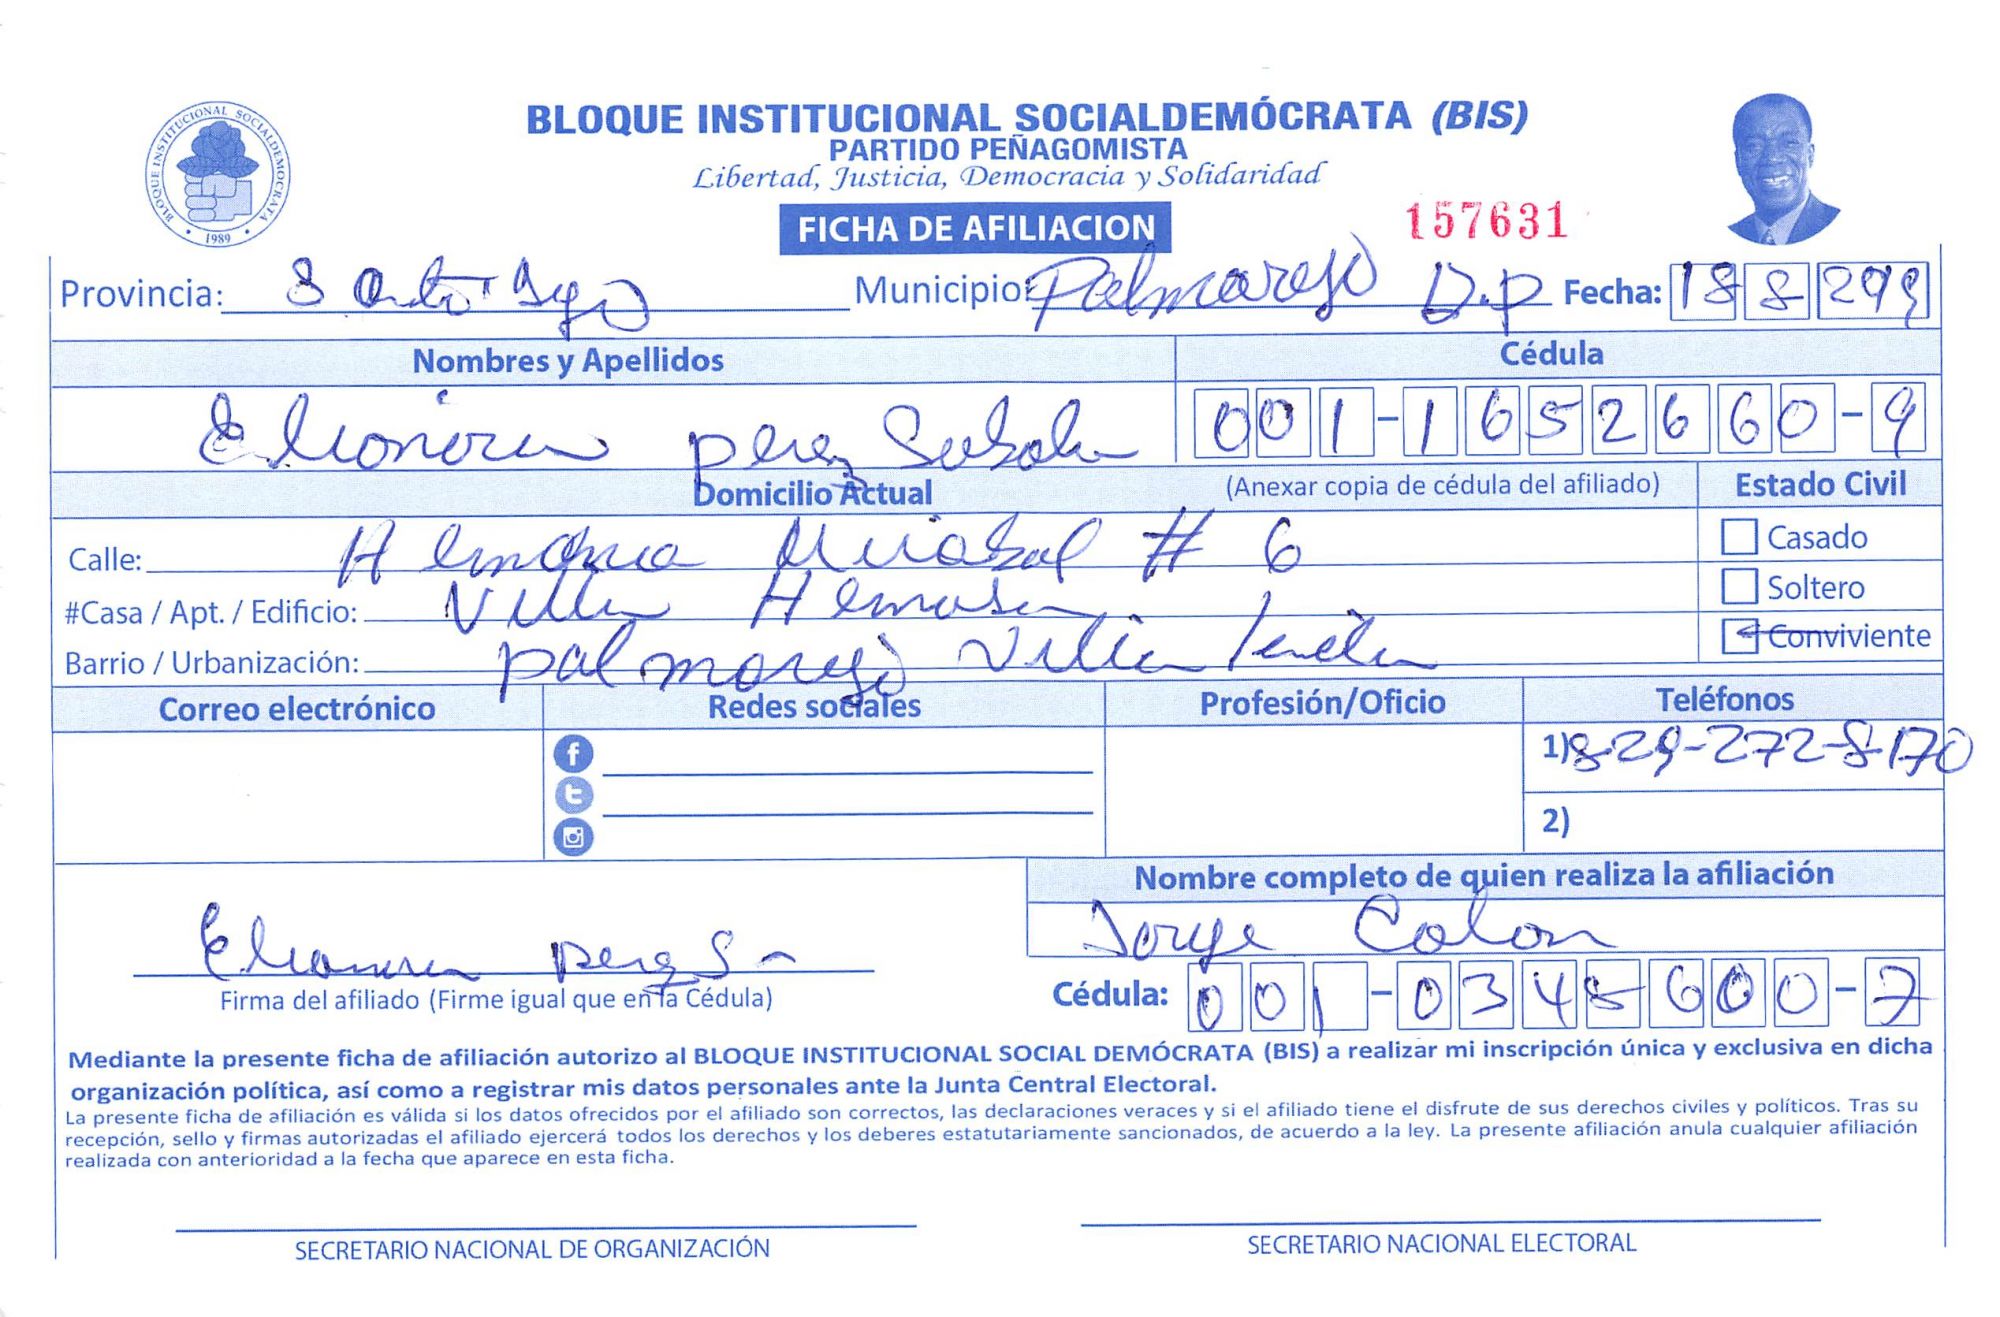 BLOQUE INSTITUCIONAL SOCIALDEMÓCRATA (BIS)
PARTIDO PEÑAGOMISTA
Libertad, Justicia, Democracia y Solidaridad
BLOQUE INSTITUCIONAL SOCIALDEMOCRATA
1989
FICHA DE AFILIACION
157631
Provincia: Municipio: Palmarejo D.P Fecha: 18 8
Nombres y Apellidos Cédula
perez 001-1652660-9
Domicilio Actual (Anexar copia de cédula del afiliado) Estado Civil
Calle: # 6 Casado
#Casa / Apt. / Edificio: Villa Soltero
Barrio / Urbanización: palmarejo Villa Conviviente
Correo electrónico Redes sociales Profesión/Oficio Teléfonos
1) 829-272-8170
2)
Nombre completo de quien realiza la afiliación
Jorge Colon
perez S
Firma del afiliado (Firme igual que en la Cédula) Cédula: 001-0345600-7
Mediante la presente ficha de afiliación autorizo al BLOQUE INSTITUCIONAL SOCIAL DEMÓCRATA (BIS) a realizar mi inscripción única y exclusiva en dicha
organización política, así como a registrar mis datos personales ante la Junta Central Electoral.
La presente ficha de afiliación es válida si los datos ofrecidos por el afiliado son correctos, las declaraciones veraces y si el afiliado tiene el disfrute de sus derechos civiles y políticos. Tras su
recepción, sello y firmas autorizadas el afiliado ejercerá todos los derechos y los deberes estatutariamente sancionados, de acuerdo a la ley. La presente afiliación anula cualquier afiliación
realizada con anterioridad a la fecha que aparece en esta ficha.
SECRETARIO NACIONAL DE ORGANIZACIÓN SECRETARIO NACIONAL ELECTORAL